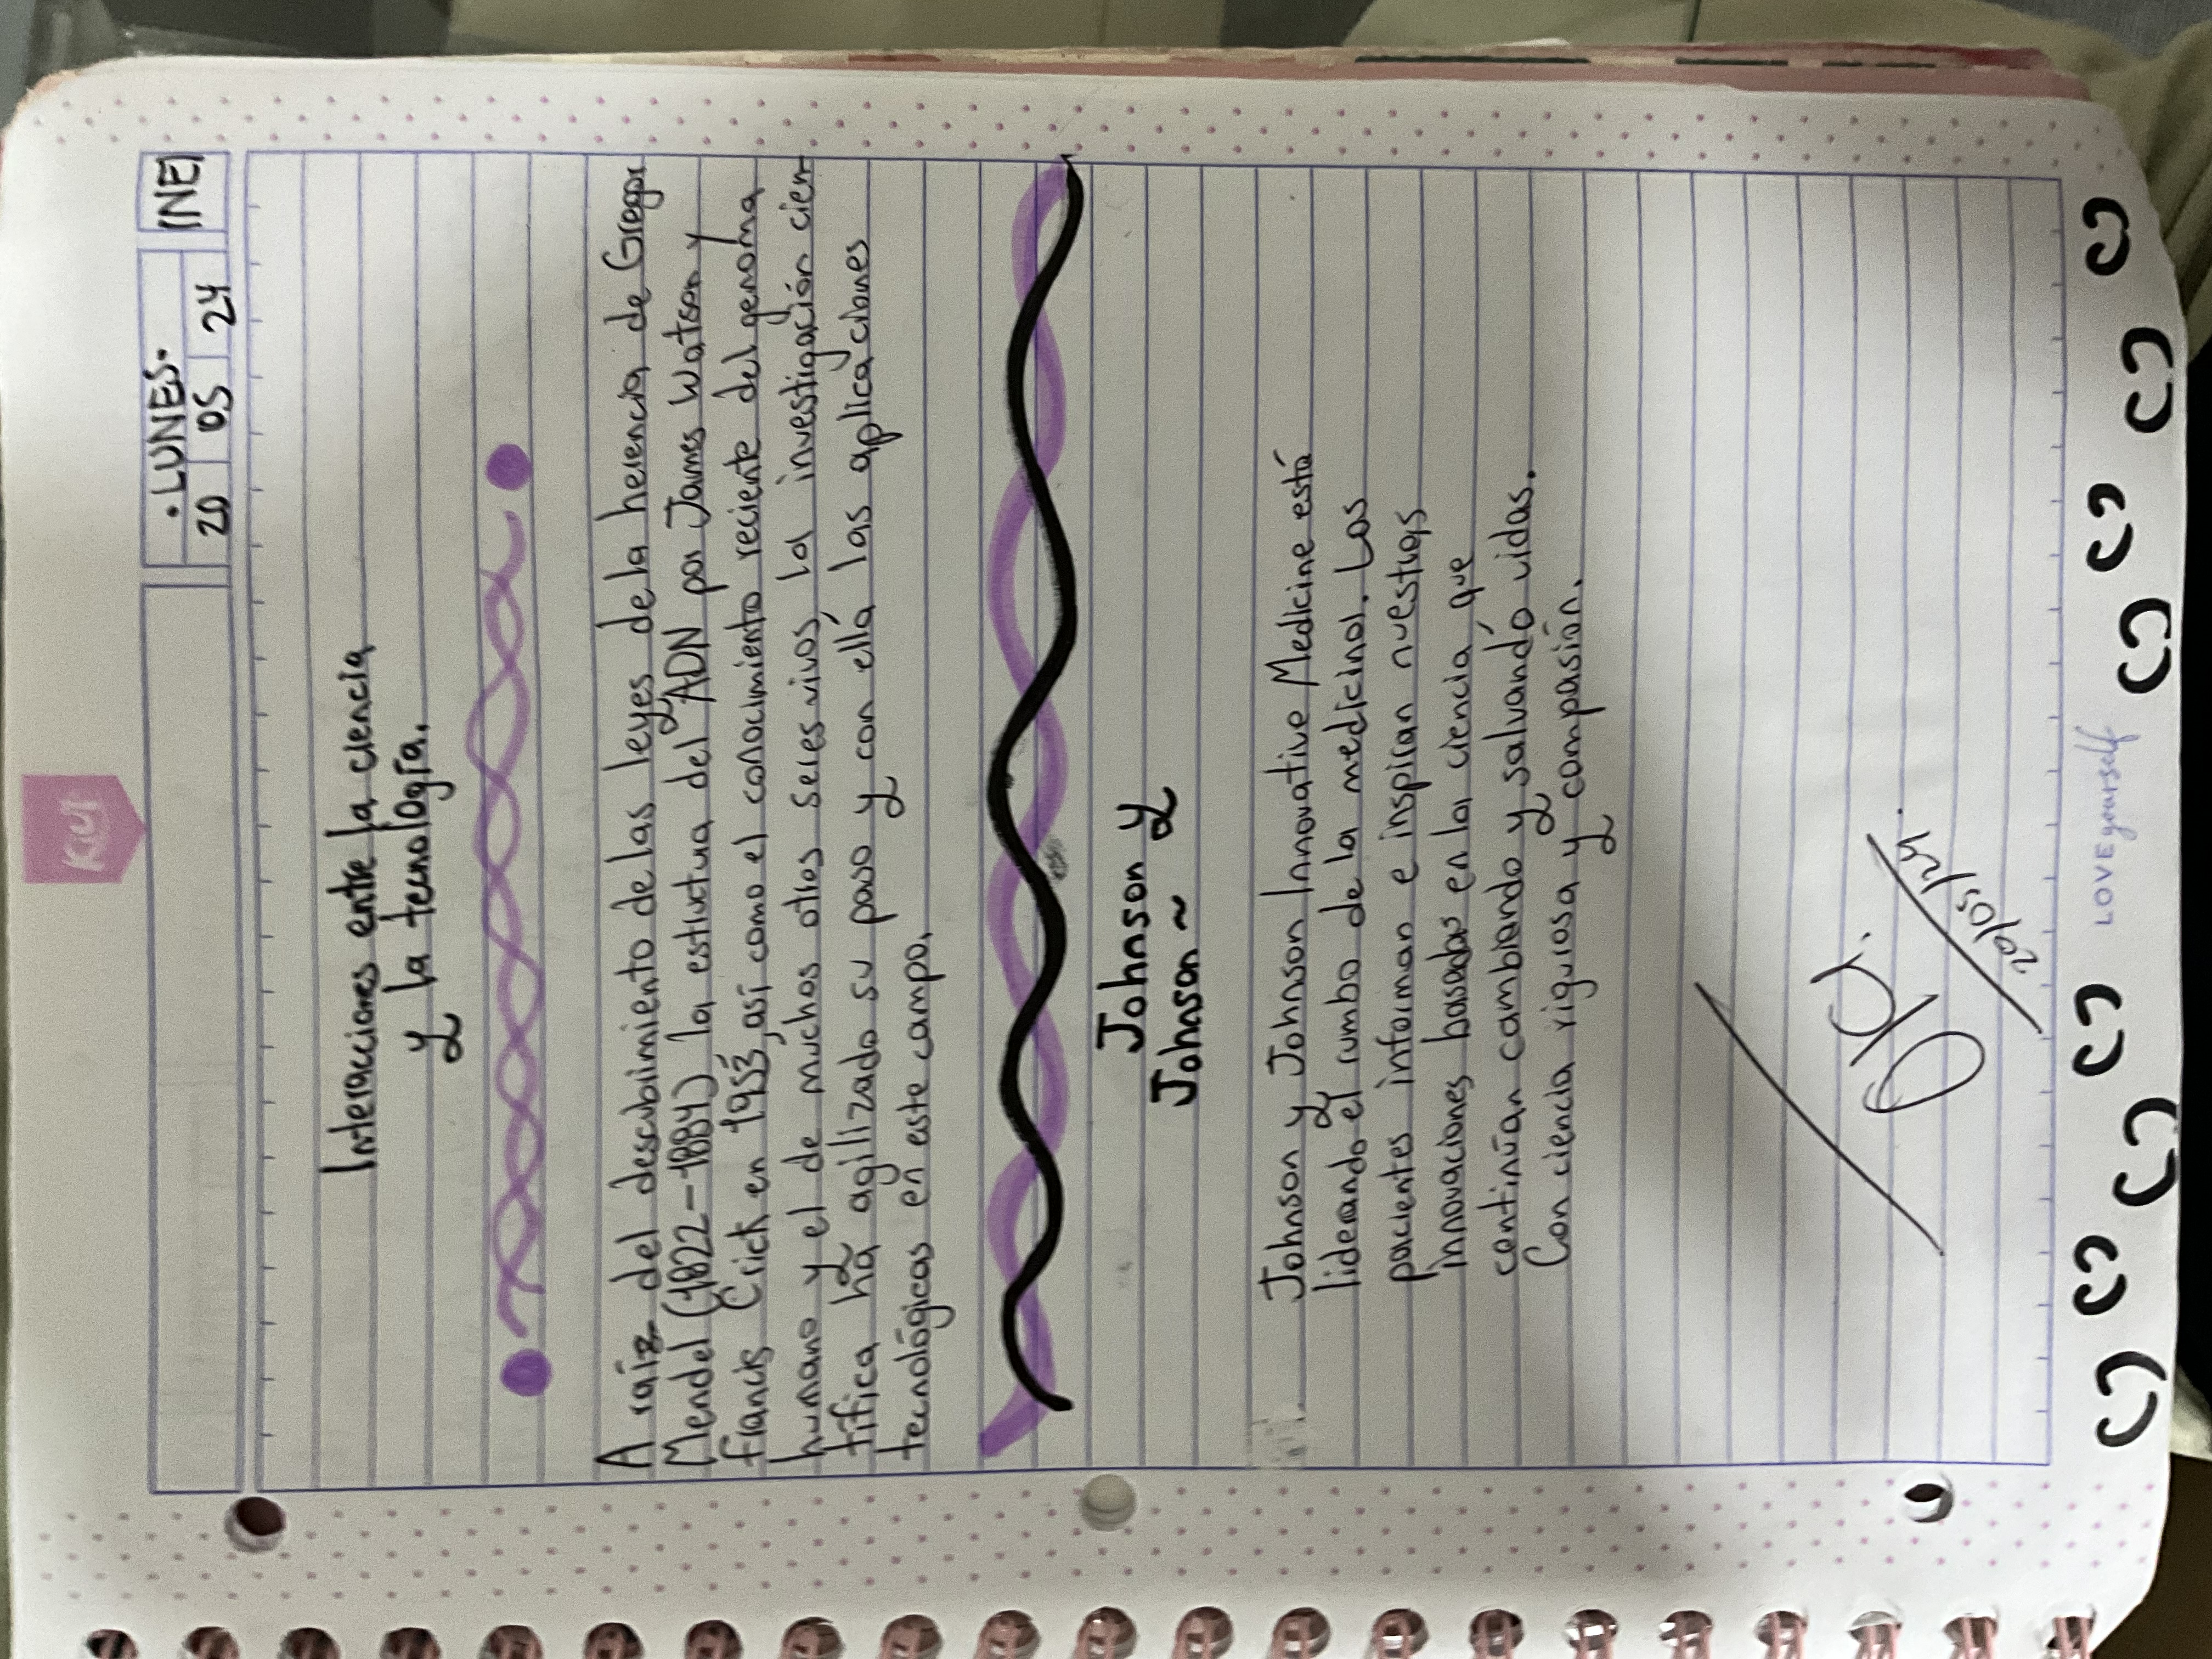 Kiut
• LUNES •
20 05 24
INE
Interacciones entre la ciencia
y la tecnología.
A raíz del descubrimiento de las leyes de la herencia de Gregor
Mendel (1822-1884) la estructura del ADN por James Watson y
Francis Crick en 1953, así como el conocimiento reciente del genoma
humano y el de muchos otros seres vivos, la investigación cien-
tífica ha agilizado su paso y con ella las aplicaciones
tecnológicas en este campo.
Johnson y
Johnson ~
Johnson y Johnson Innovative Medicine está
liderando el rumbo de la medicina. Los
pacientes informan e inspiran nuestras
innovaciones basadas en la ciencia que
continúan cambiando y salvando vidas.
Con ciencia rigurosa y compasión.
OK.
20/05/24.
LOVE yourself